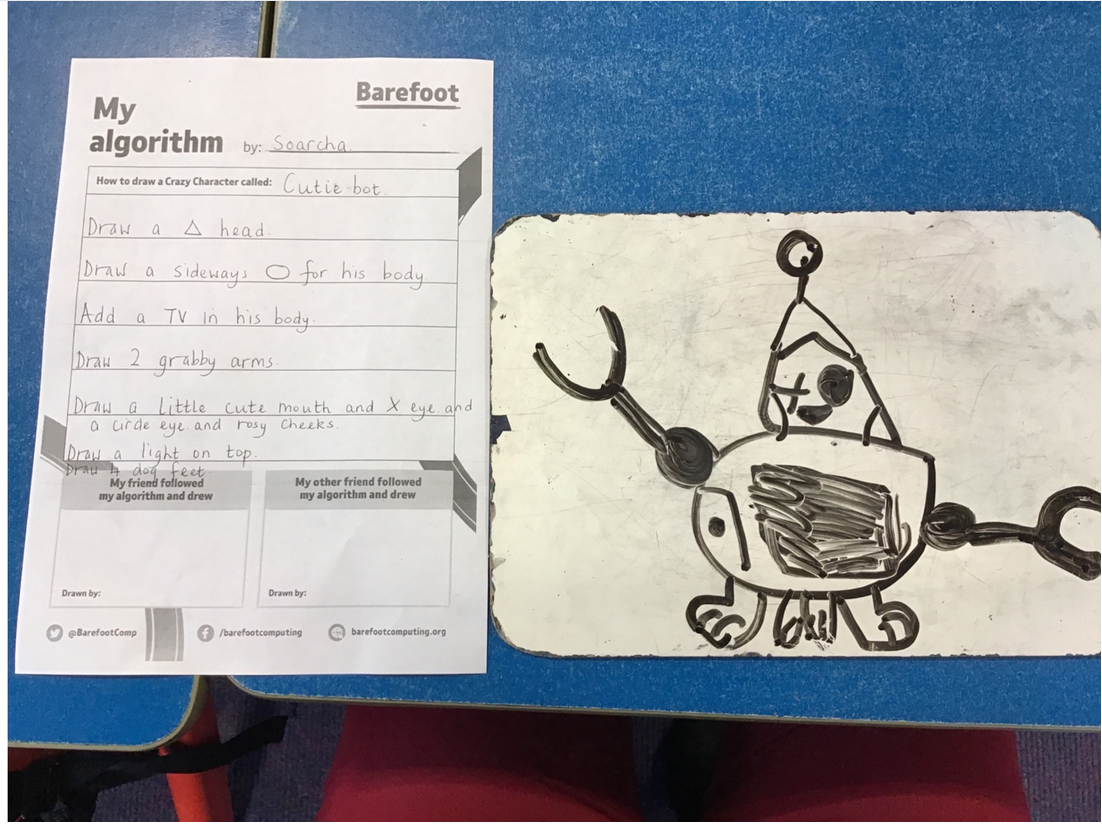 Barefoot
My
algorithm by: Soarcha
How to draw a Crazy Character called: Cutie bot.
Draw a △ head.
Draw a sideways ⬭ for his body
Add a TV in his body.
Draw 2 grabby arms.
Draw a little cute mouth and X eye and
a circle eye and rosy cheeks.
Draw a light on top.
Draw 4 dog feet
My friend followed
my algorithm and drew
My other friend followed
my algorithm and drew
Drawn by:
Drawn by:
@BarefootComp
/barefootcomputing
barefootcomputing.org